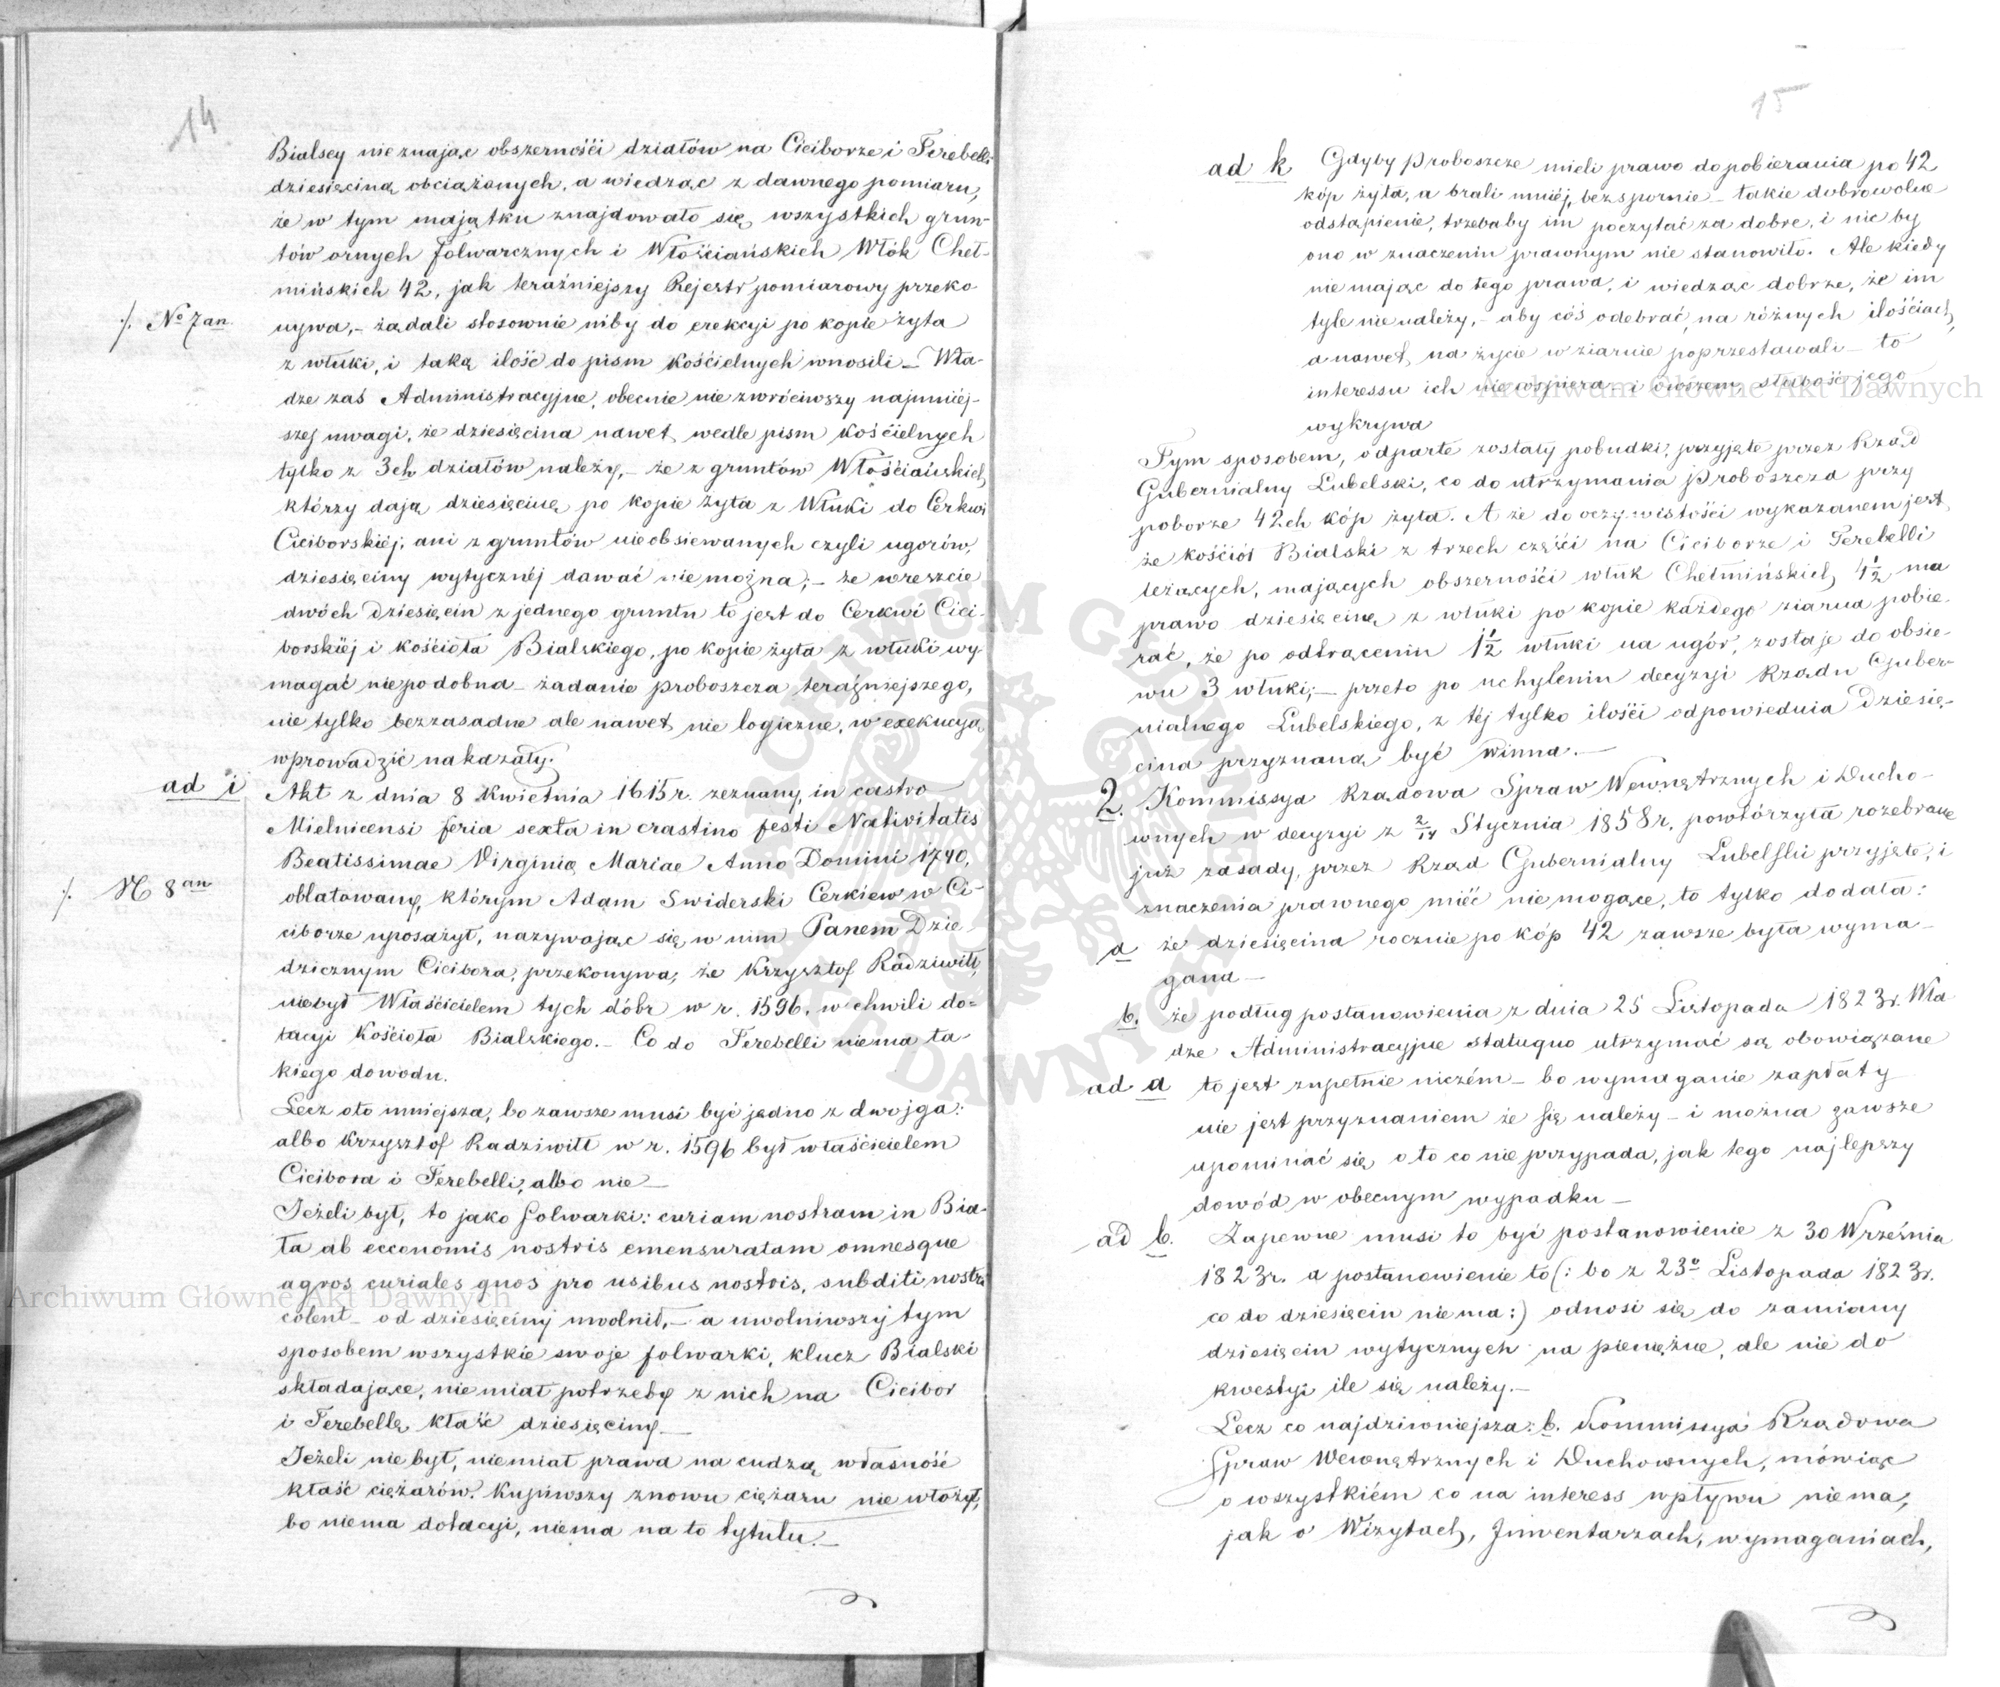 14
Bialscy nie znając obszerności działów na Ciciborze i Terebeli
dziesięciną obciążonych, a wiedząc z dawnego pomiaru,
że w tym majątku znajdowało się, wszystkich grun-
tów ornych folwarcznych i Włościańskich Włók Cheł-
mińskich 42, jak teraźniejszy Rejestr pomiarowy przeko-
./. No 7 an.
nywa,- żądali stosownie niby do erekcyi po kopie żyta
z włuki, i taką ilość do pism kościelnych wnosili - Wła-
dze zaś Administracyjne, obecnie nie zwróciwszy najmniéj-
szej uwagi, że dziesięcina nawet wedle pism kościelnych
tylko z 3ch działów należy,- że z gruntów Włościańskich,
którzy dają dziesięcinę po kopie żyta z Włuki do Cerkwi
Ciciborskiéj, ani z gruntów nieobsiewanych czyli ugorów,
dziesięciny wytycznéj dawać nie można;- że wreszcie
dwóch dziesięcin z jednego gruntu to jest do Cerkwi Cici-
borskiéj i kościoła Bialskiego, po kopie żyta z włuki wy-
magać niepodobna - żądanie proboszcza teraźniejszego,
nie tylko bezzasadne ale nawet nie logiczne, w exekucyą
wprowadzić nakazały.
ad i
Akt z dnia 8 Kwietnia 1615 r. zeznany, in castro
Mielnicensi feria sexta in crastino festi Nativitatis
Beatissimae Virginis Mariae Anno Domini 1740,
./. N 8 an
oblatowany, którym Adam Swiderski Cerkiew w Ci-
ciborze uposażył, nazywając się w nim Panem Dzie-
dzicznym Cicibora, przekonywa, że Krzysztof Radziwiłł,
niebył Właścicielem tych dóbr w r. 1596, w chwili do-
tacyi Kościoła Bialskiego.- Co do Terebelli niema ta-
kiego dowodu.
Lecz oto mniejsza, bo zawsze musi być jedno z dwojga:
albo Krzysztof Radziwiłł w r. 1596 był właścicielem
Cicibora i Terebelli, albo nie -
Jeżeli był, to jako folwarki: curiam nostram in Bia-
ła ab ecconomis nostris emensuratam omnesque
agros curiales quos pro usibus nostris, subditi nostri
colent - od dziesięciny uwolnił,- a uwolniwszy tym
sposobem wszystkie swoje folwarki, klucz Bialski
składające, niemiał potrzeby z nich na Cicibor
i Terebellę kłaść dziesięciny -
Jeżeli nie był, niemiał prawa na cudzą własność
kłaść ciężarów. Kupiwszy znowu ciężaru nie włożył,
bo niema dotacyi, niema na to tytułu.-
15
ad k Gdyby proboszcze mieli prawo do pobierania po 42
kóp żyta, a brali mniéj, bezspornie - takie dobrowolne
odstąpienie, trzebaby im poczytać za dobre, i nic by
ono w znaczeniu prawnym nie stanowiło. Ale kiedy
nie mając do tego prawa, i wiedząc dobrze, że im
tyle nie należy,- aby cóś odebrać, na różnych ilościach,
a nawet na życie w ziarnie poprzestawali - to
interessu ich nie wspiera, i owszem, słabość jego
wykrywa
Tym sposobem, odparte zostały pobudki, przyjęte przez Rząd
Gubernialny Lubelski, co do utrzymania proboszcza przy
poborze 42ch kóp żyta. A że do oczywistości wykazanem jest,
że kościół Bialski z trzech części na Ciciborze i Terebelli
leżących, mających obszerności włuk Chełmińskich 4 1/2 ma
prawo dziesięcinę z włuki po kopie każdego ziarna pobie-
rać, że po odtrąceniu 1 1/2 włuki na ugór, zostaje do obsie-
wu 3 włuki;- przeto po uchyleniu decyzyi Rządu Guber-
nialnego Lubelskiego, z téj tylko ilości odpowiednia Dziesię-
cina przyznaną być winna.-
2. Kommissya Rządowa Spraw Wewnętrznych i Ducho-
wnych w decyzyi z 2/14 Stycznia 1858 r. powtórzyła rozebrane
już zasady, przez Rząd Gubernialny Lubelski przyjęte, i
znaczenia prawnego mieć niemogące, to tylko dodała:
a że dziesięcina rocznie po kóp 42 zawsze była wyma-
gana -
b. że podług postanowienia z dnia 25 Listopada 1823 r. Wła-
dze Administracyjne statuquo utrzymać są obowiązane
ad a to jest zupełnie niczém - bo wymaganie zapłaty
nie jest przyznaniem że się należy - i można zawsze
upominać się o to co nie przypada, jak tego najlepszy
dowód w obecnym wypadku -
ad b. Zapewne musi to być postanowienie z 30 Września
1823 r. a postanowienie to (: bo z 23o Listopada 1823 r.
co do dziesięcin niema :) odnosi się do zamiany
dziesięcin wytycznych na pieniężne, ale nie do
kwestyi ile się należy.-
Lecz co najdziwniejsza: b. Kommissya Rządowa
Spraw Wewnętrznych i Duchownych, mówiąc
o wszystkiém co na interess wpływu niema,
jak o Wizytach, Inwentarzach, wymaganiach,
Archiwum Główne Akt Dawnych
Archiwum Główne Akt Dawnych
ARCHIWUM GŁÓWNE AKT DAWNYCH